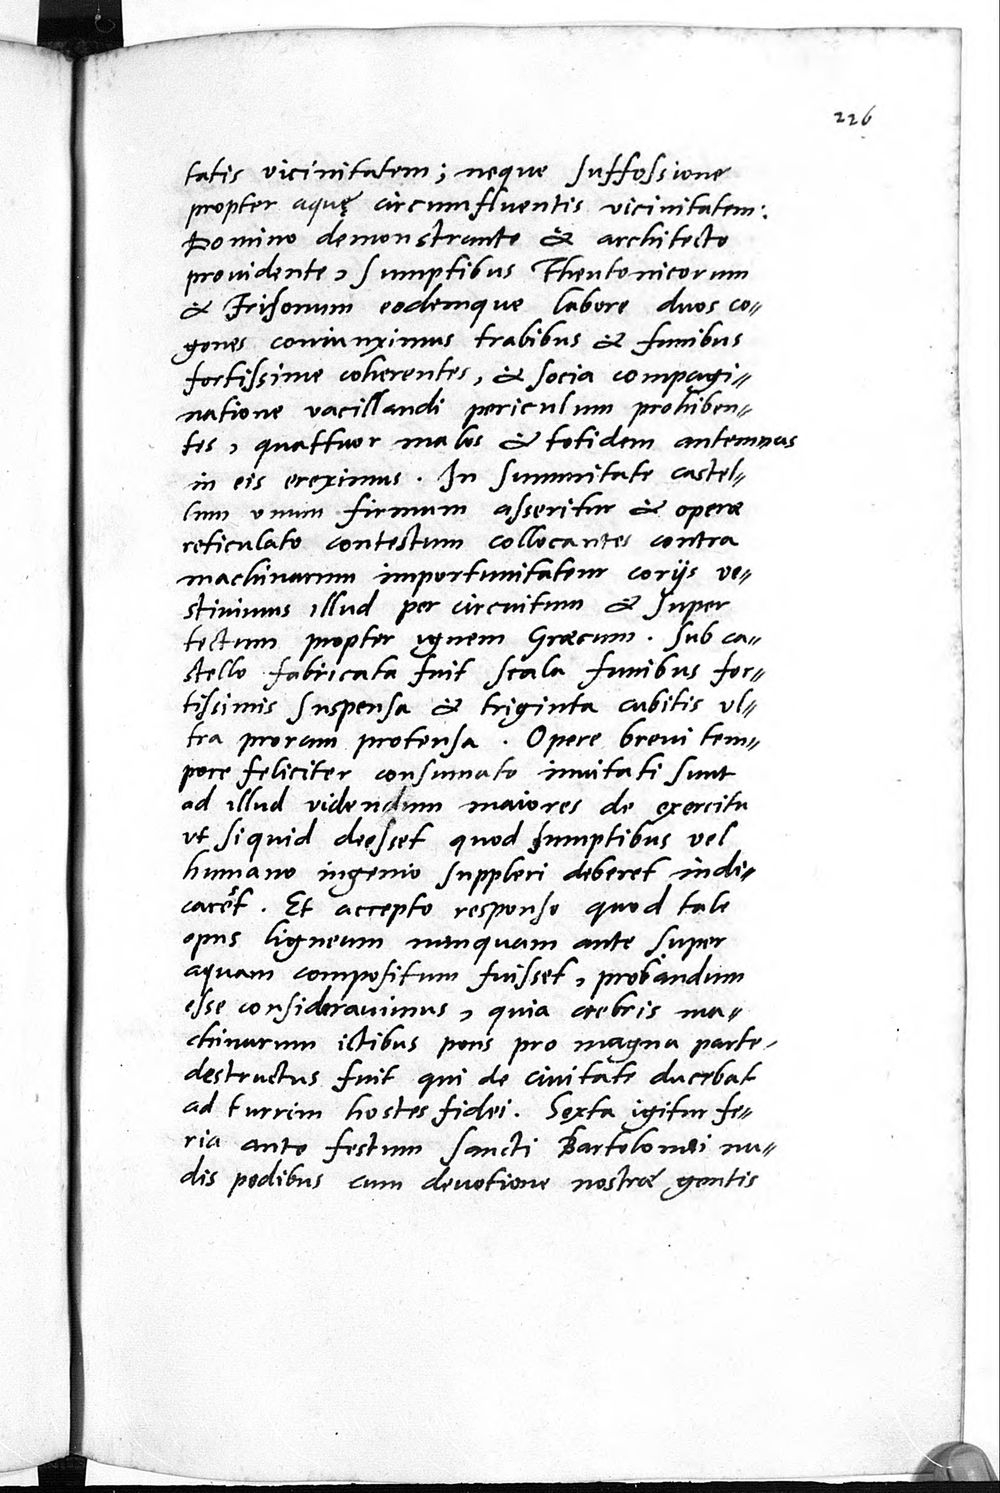 226
tatis vicinitatem; neque suffossione
propter aquę circumfluentis vicinitatem:
Domino demonstrante & architecto
prouidente, sumptibus Theutonicorum
& Frisonum eodemque labore duos co=
gones coniunximus trabibus & funibus
fortissime coherentes, & socia compagi=
natione vacillandi periculum prohiben=
tes, quattuor malos & totidem antemnas
in eis ereximus. In summitate castel=
lum vnum firmum asseritur & operæ
reticulato contestum collocantes contra
machinarum importunitatem corijs ve=
stiuimus illud per circuitum & super
tectum propter ignem Græcum. Sub ca=
stello fabricata fuit scala funibus for=
tissimis suspensa & triginta cubitis vl=
tra proram protensa. Opere breui tem=
pore feliciter consumato inuitati sunt
ad illud videndum maiores de exercitu
vt siquid deesset quod sumptibus vel
humano ingenio suppleri deberet indi=
carēt. Et accepto responso quod tale
opus ligneum nunquam ante super
aquam compositum fuisset, probandum
esse considerauimus, quia crebris ma=
chinarum ictibus pons pro magna parte
destructus fuit qui de ciuitate ducebat
ad turrim hostes fidei. Sexta igitur fe=
ria ante festum sancti Bartolomæi nu=
dis pedibus cum deuotione nostræ gentis